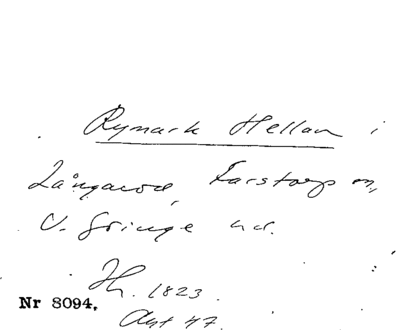 Rymark Hellan i
Långaröd, Farstorp sn,
V. Göinge hd.
Hh. 1823.
Nr 8094.
Avst 47.